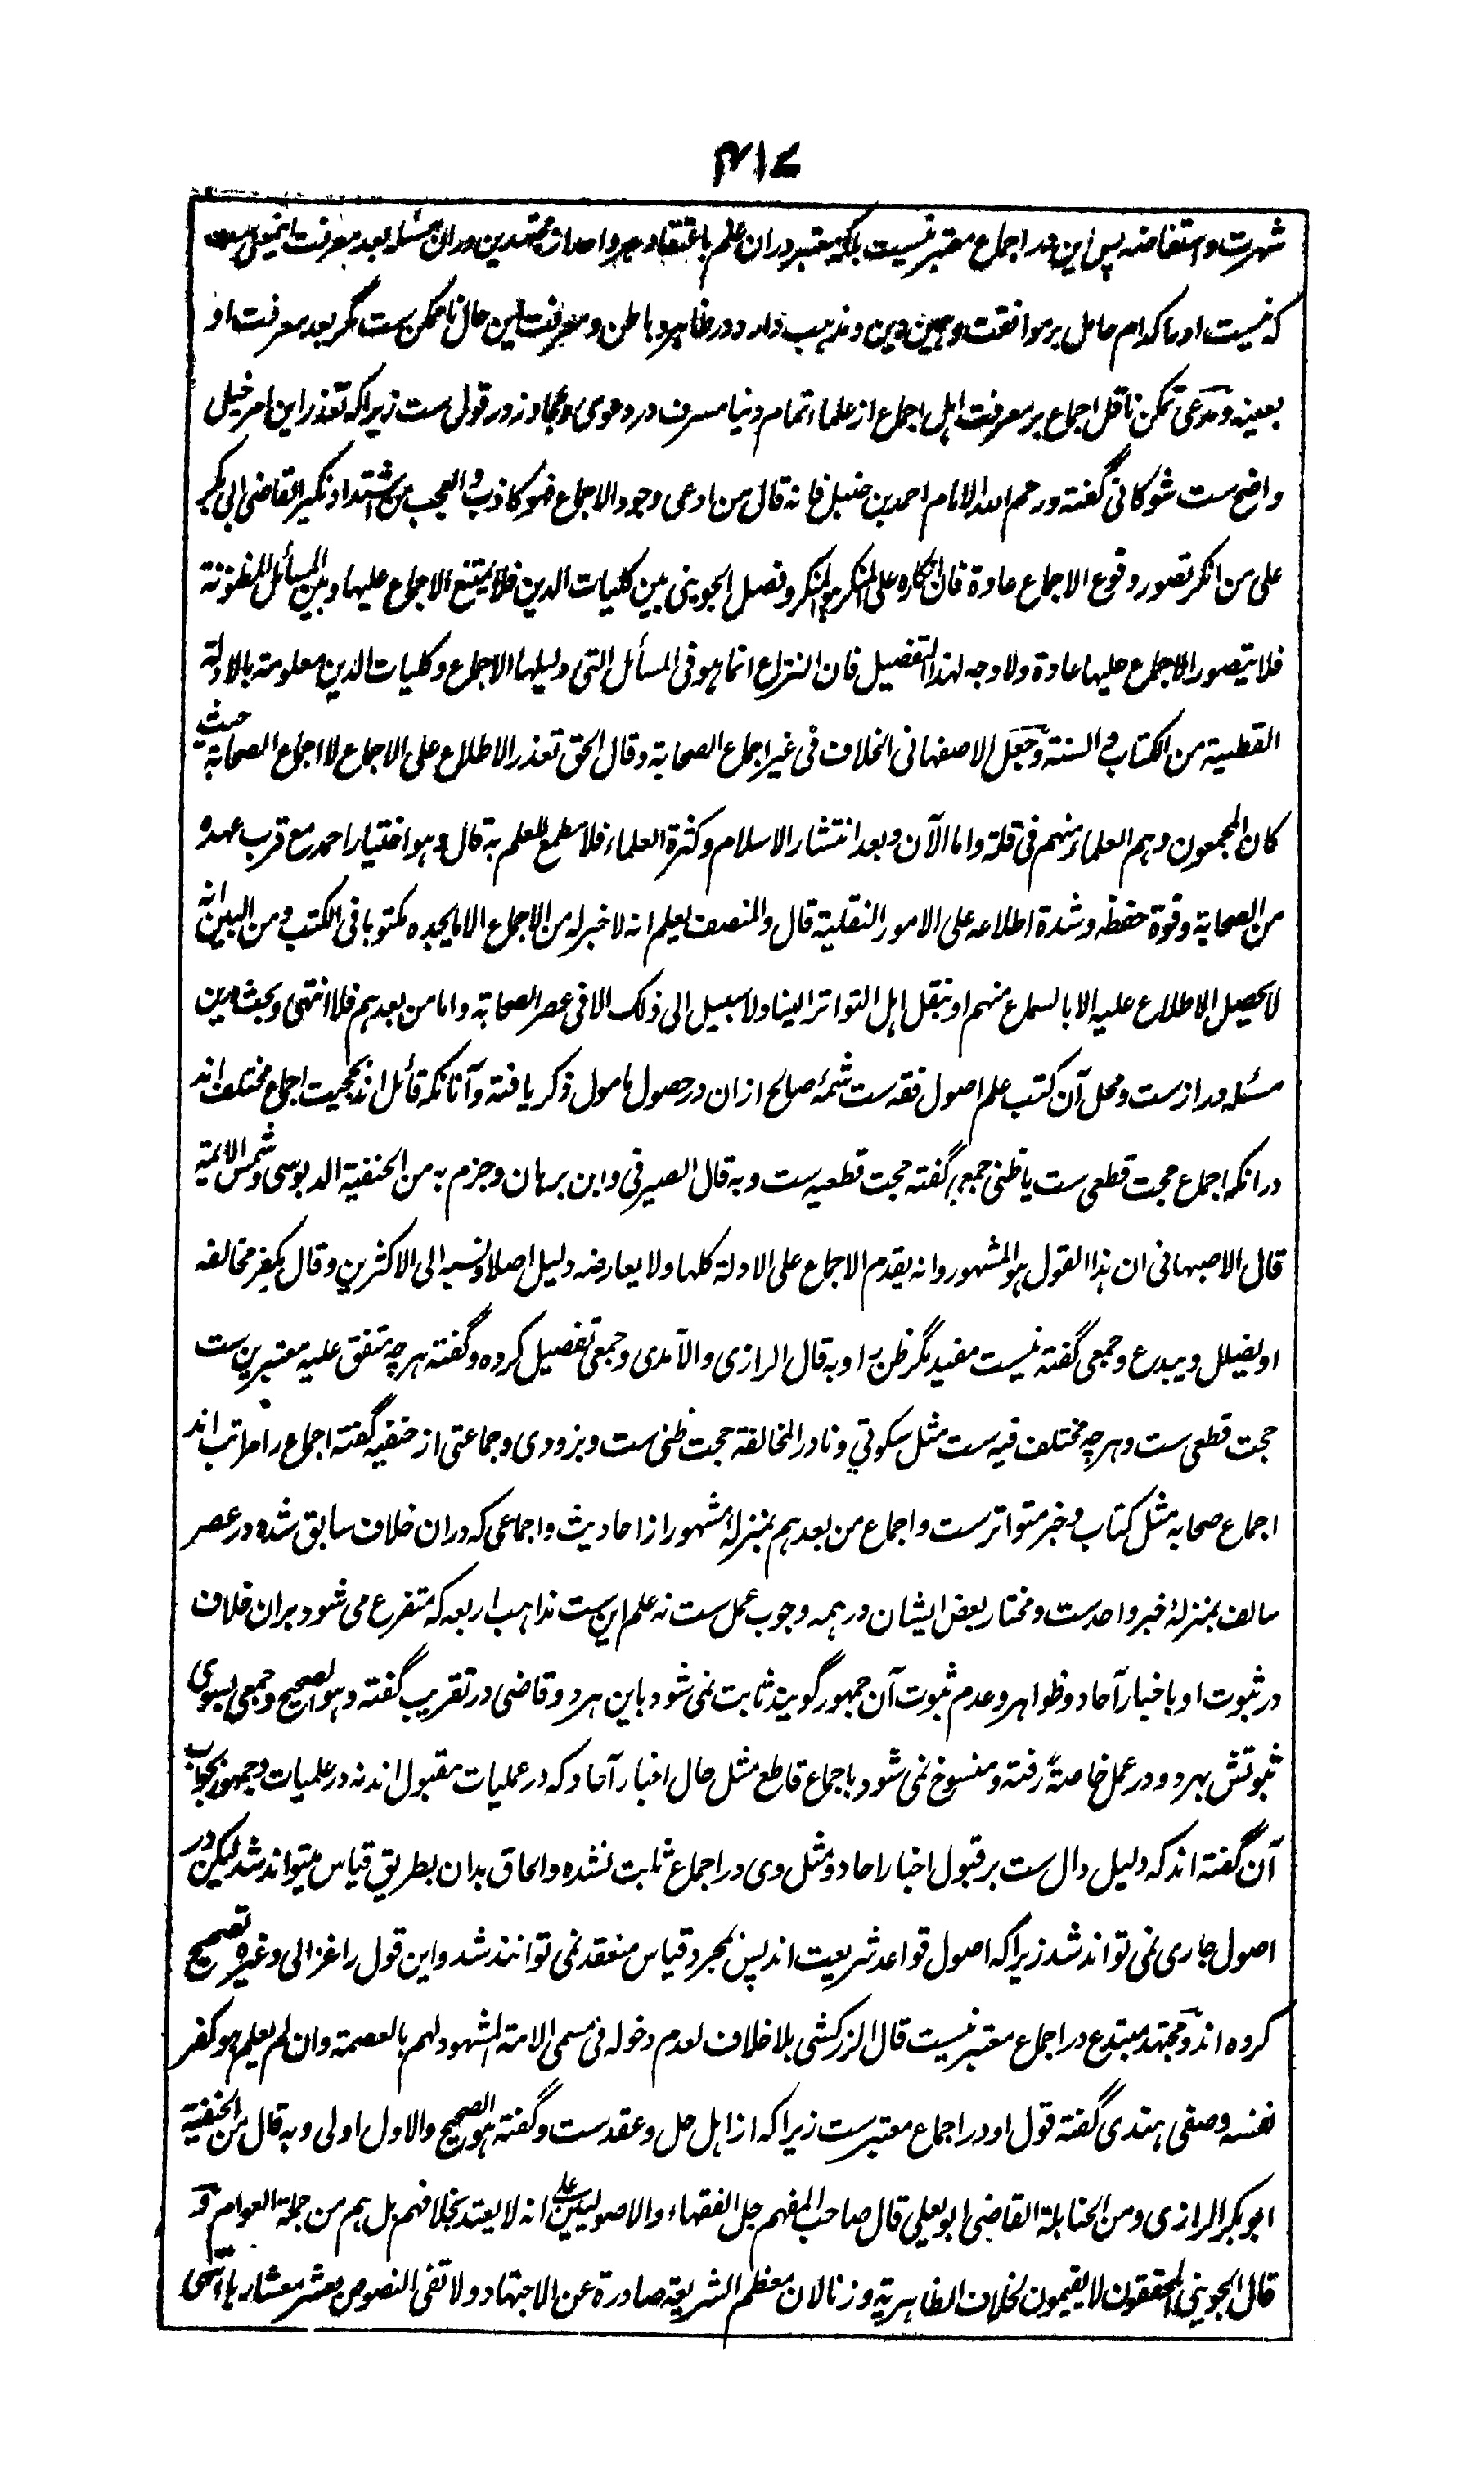 ۴۱۷
شهرت و استفاضه پس این در اجماع معتبر نیست بلکه معتبر دران علم باعتقاد هر واحد از مجتهدین دران مسئله بعد معرفت اینمعنی ست
که نیست او را کدام حامل بر موافقت و همین دین و مذهب دارد در ظاهر و باطن و معرفت این حال ناممکن ست مگر بعد معرفت او
بعینه و مدعی تمکن ناقل اجماع بر معرفت اہل اجماع از علماء تمام دنیا مسرف در دعوی و مجاوز در قول ست زیرا که تعذر این امر خیل
واضح ست شوکانی گفته و رحم الله الامام احمد بن حنبل فانه قال من ادعی وجود الاجماع فهو کاذب و العجب من اشتداد نکیر القاضی ابی بکر
علی من انکر تصور وقوع الاجماع عادة فان انکاره علی المنکر هو المنکر و فصل الجوینی بین کلیات الدین فلا یمتنع الاجماع علیها و بین المسائل المظنونة
فلا یتصور الاجماع علیها عادة ولا وجه لهذا التفصیل فان النزاع انما هو فی المسائل التی دلیلها الاجماع و کلیات الدین معلومة بالادلة
القطعیة من الکتاب و السنة و جعل الاصفهانی الخلاف فی غیر اجماع الصحابة و قال الحق تعذر الاطلاع علی الاجماع لا اجماع الصحابة حیث
کان المجمعون و هم العلماء منهم فی قلة و اما الآن و بعد انتشار الاسلام و کثرة العلماء فلا مطمع للعلم به قال و هو اختیار احمد مع قرب عهده
من الصحابة و قوة حفظه و شدة اطلاعه علی الامور النقلیة قال و المنصف یعلم انه لا خبر له من الاجماع الا ما یجده مکتوبا فی الکتب و من البین انه
لا یحصل الاطلاع علیه الا بالسماع منهم او بنقل اہل التواتر الینا ولا سبیل الی ذلک الا فی عصر الصحابة و اما من بعدهم فلا انتهی و بحث درین
مسئله دراز ست و محل آن کتب علم اصول فقه ست شمهٔ صالح ازان در حصول مامول ذکر یافته و آنانکه قائل اند بحجیت اجماع مختلف اند
درانکه اجماع حجت قطعی ست یا ظنی جمعی گفته حجت قطعیه ست و به قال الصیرفی و ابن برهان و جزم به من الحنفیة الدبوسی و شمس الائمة
قال الاصبهانی ان هذا القول هو المشهور و انه یقدم الاجماع علی الادلة کلها ولا یعارضه دلیل اصلا و نسبه الی الاکثرین و قال یکفر مخالفه
او یضلل و یبدع و جمعی گفته نیست مفید مگر ظن را و به قال الرازی و الآمدی و جمعی تفصیل کرده و گفته هر چه متفق علیه معتبرین ست
حجت قطعی ست و هر چه مختلف فیه ست مثل سکوتی و نادر المخالفة حجت ظنی ست و بزودی و جماعتی از حنفیه گفته اجماع را مراتب اند
اجماع صحابه مثل کتاب و خبر متواتر ست و اجماع من بعدهم بمنزلهٔ مشهور از احادیث و اجماعی که دران خلاف سابق شده در عصر
سالف بمنزلهٔ خبر واحد ست و مختار بعض ایشان در همه وجوب عمل ست نه علم این ست مذاهب اربعه که متفرع می شود بران خلاف
در ثبوت او باخبار آحاد و ظواهر و عدم ثبوت آن جمهور گویند ثابت نمی شود باین هر دو قاضی در تقریب گفته و هو الصحیح و جمعی بسوی
ثبوتش بهر دو در عمل خاصةً رفته و منسوخ نمی شود باجماع قاطع مثل حال اخبار آحاد که در عملیات مقبول اند نه در علمیات و جمهور بجواب
آن گفته اند که دلیل دال ست بر قبول اخبار احاد و مثل وی در اجماع ثابت نشده و الحاق بدان بطریق قیاس میتواند شد لیکن در
اصول جاری نمی تواند شد زیرا که اصول قواعد شریعت اند پس بمجرد قیاس منعقد نمی توانند شد و این قول را غزالی و غیره تصحیح
کرده اند و مجتهد مبتدع در اجماع معتبر نیست قال الزرکشی بلا خلاف لعدم دخوله فی مسمی الامة المشهود لهم بالعصمة و ان لم یعلم هو کفر
نفسه و صفی هندی گفته قول او در اجماع معتبر ست زیرا که از اہل حل و عقد ست و گفته هو الصحیح و الاول اولی و به قال من الحنفیة
ابو بکر الرازی و من الحنابلة القاضی ابو یعلی قال صاحب المفهم جل الفقهاء و الاصولیین علی انه لا یعتد بخلافهم بل هم من جملة العوام و
قال الجوینی المحققون لا یقیمون لخلاف الظاهریة وزنا لان معظم الشریعة صادرة عن الاجتهاد ولا تفی النصوص بعشر معشارها انتهی